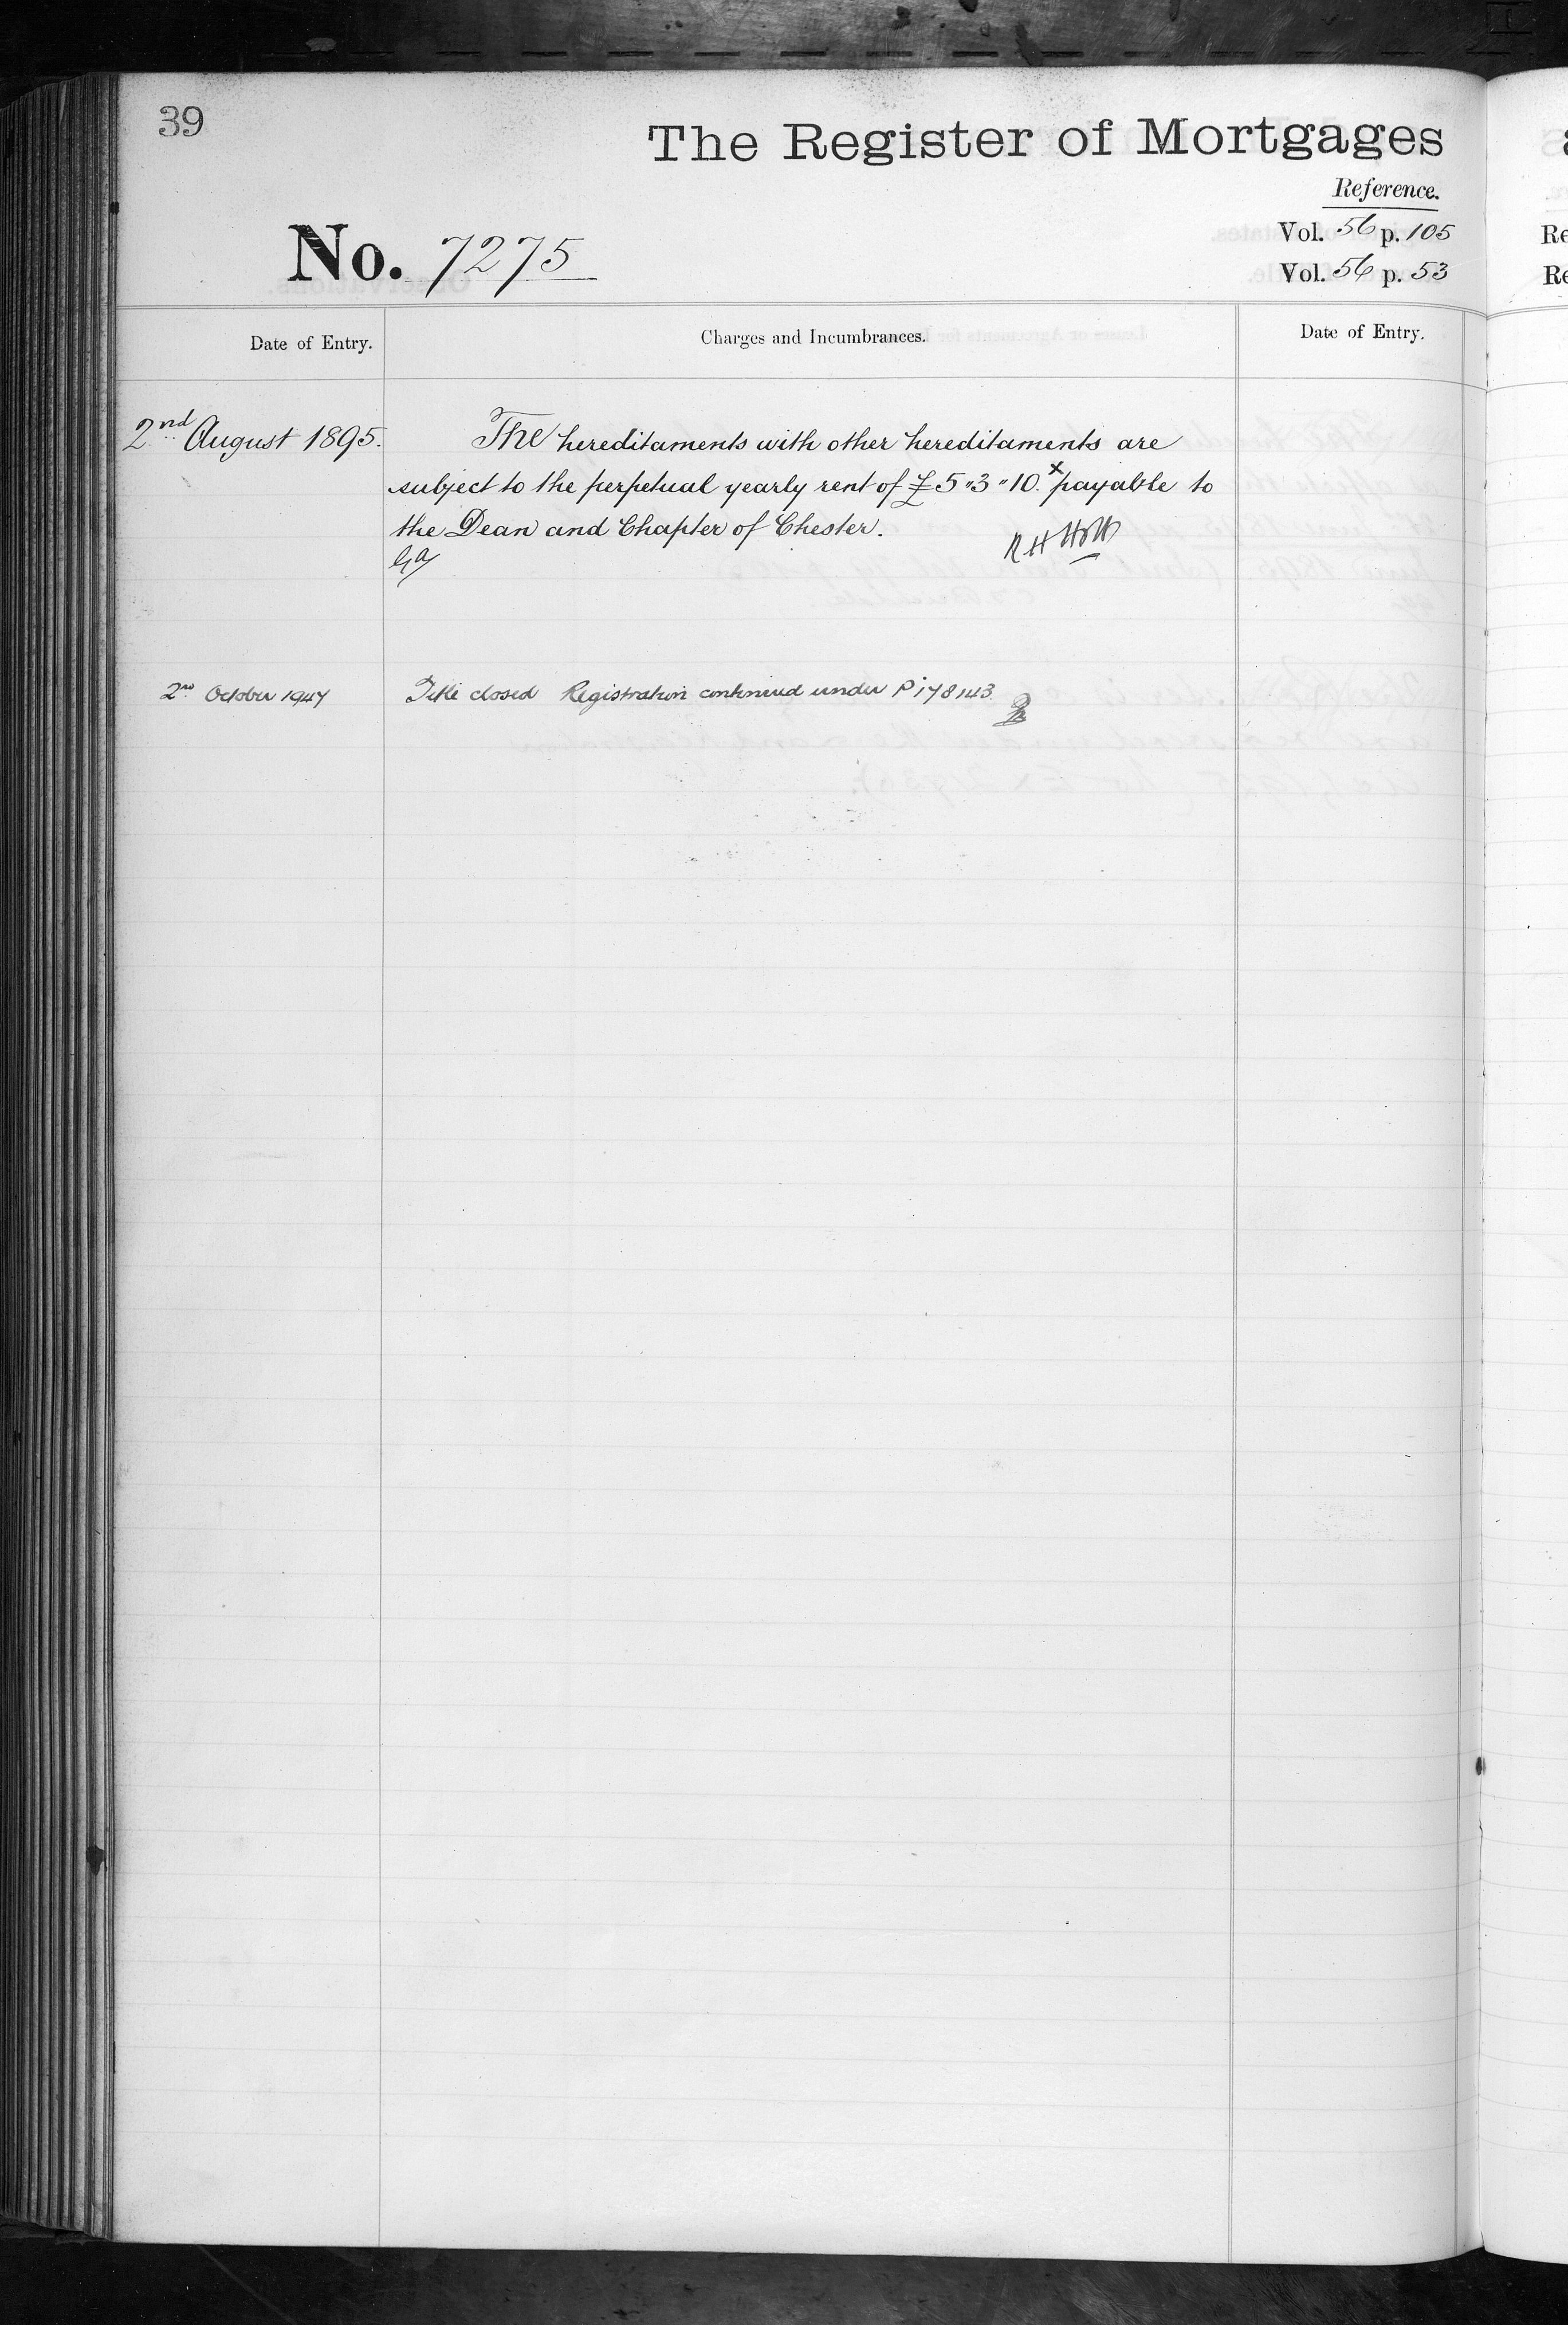 39
The Register of Mortgages
Reference.
No. 7275
Vol. 56 p. 105
Vol. 56 p. 53
Date of Entry.
Charges and Incumbrances.
Date of Entry.
2nd August 1895.
The hereditaments with other hereditaments are
subject to the perpetual yearly rent of £5"3"10.x payable to
the Dean and Chapter of Chester.
2nd October 1947
Title closed Registration continued under P178143
Re
Re